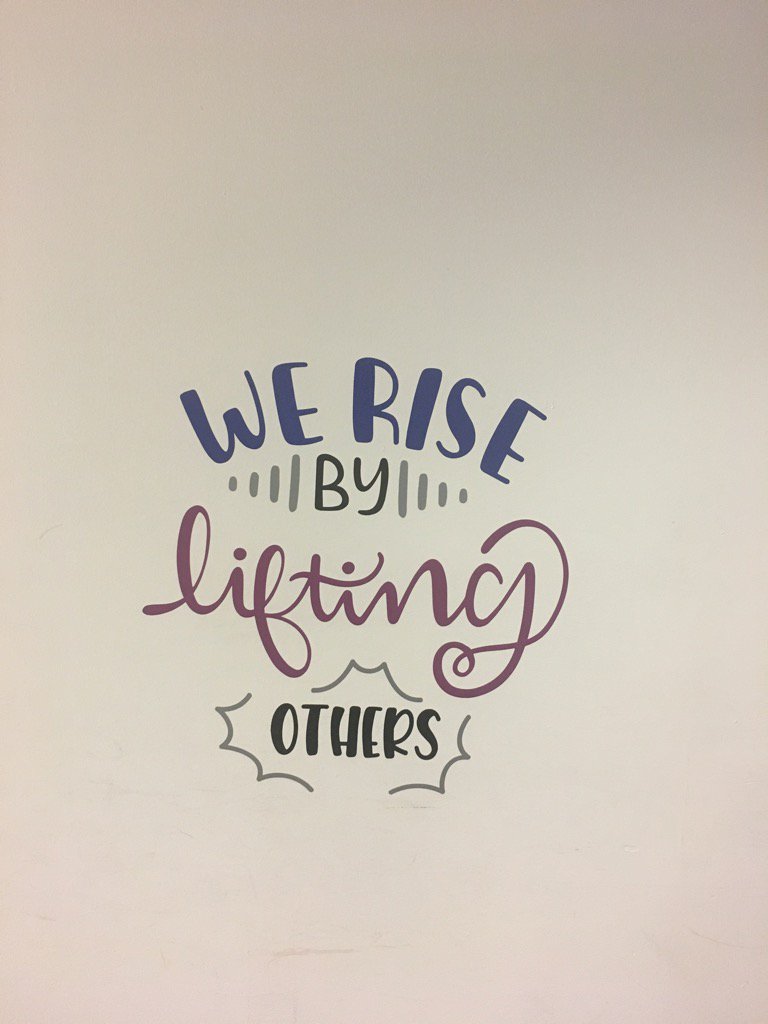 WE RISE
BY
lifting
OTHERS